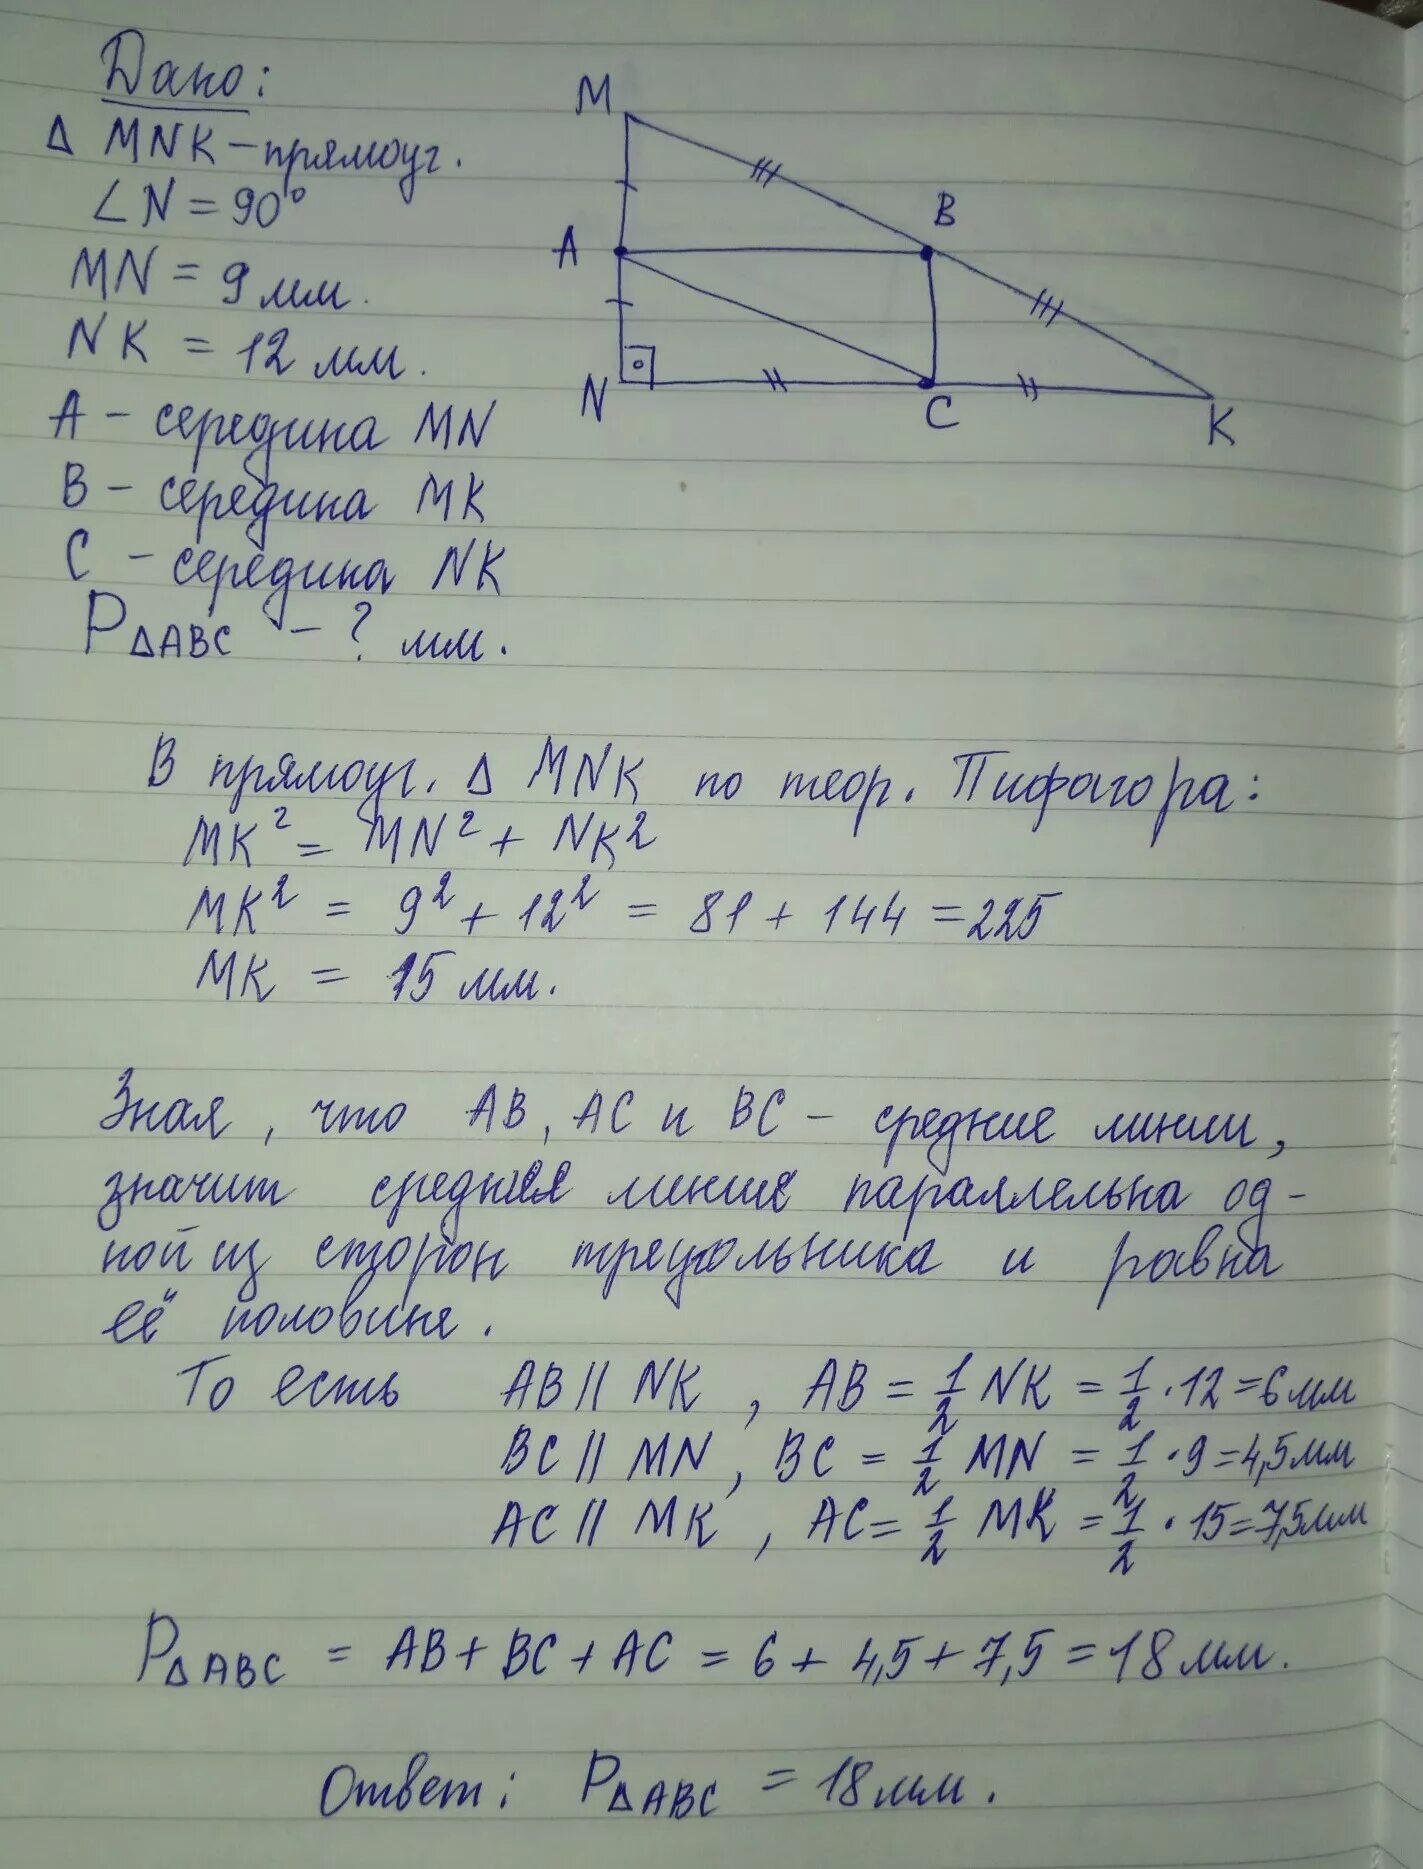 Дано:
△ MNK – прямоуг.
∠N = 90°
MN = 9 мм.
NK = 12 мм.
A – середина MN
B – середина MK
C – середина NK
P△ABC – ? мм.
M
B
A
N
C
K
В прямоуг. △ MNK по теор. Пифагора:
MK² = MN² + NK²
MK² = 9² + 12² = 81 + 144 = 225
MK = 15 мм.
Зная, что AB, AC и BC – средние линии,
значит средняя линия параллельна од-
ной из сторон треугольника и равна
её половине.
То есть AB || NK, AB = 1/2 NK = 1/2 · 12 = 6 мм
BC || MN, BC = 1/2 MN = 1/2 · 9 = 4,5 мм
AC || MK, AC = 1/2 MK = 1/2 · 15 = 7,5 мм
P△ABC = AB + BC + AC = 6 + 4,5 + 7,5 = 18 мм.
Ответ: P△ABC = 18 мм.